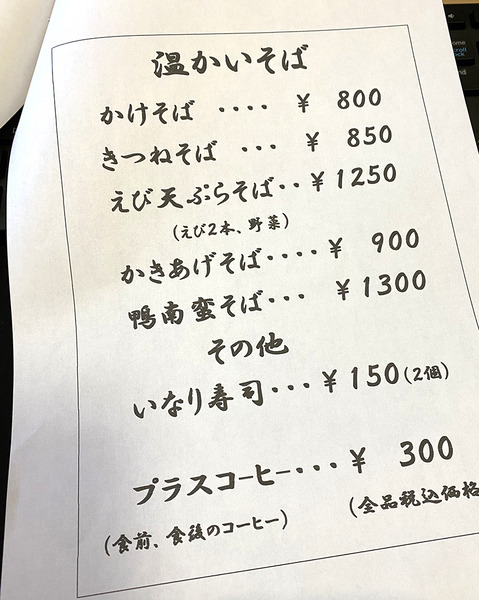 温かいそば
かけそば ････ ￥ 800
きつねそば ･･･ ￥ 850
えび天ぷらそば･･￥1250
(えび2本、野菜)
かきあげそば････￥ 900
鴨南蛮そば･･･ ￥1300
その他
いなり寿司･･･￥150(2個)
プラスコーヒー･･･￥ 300
(食前、食後のコーヒー) (全品税込価格